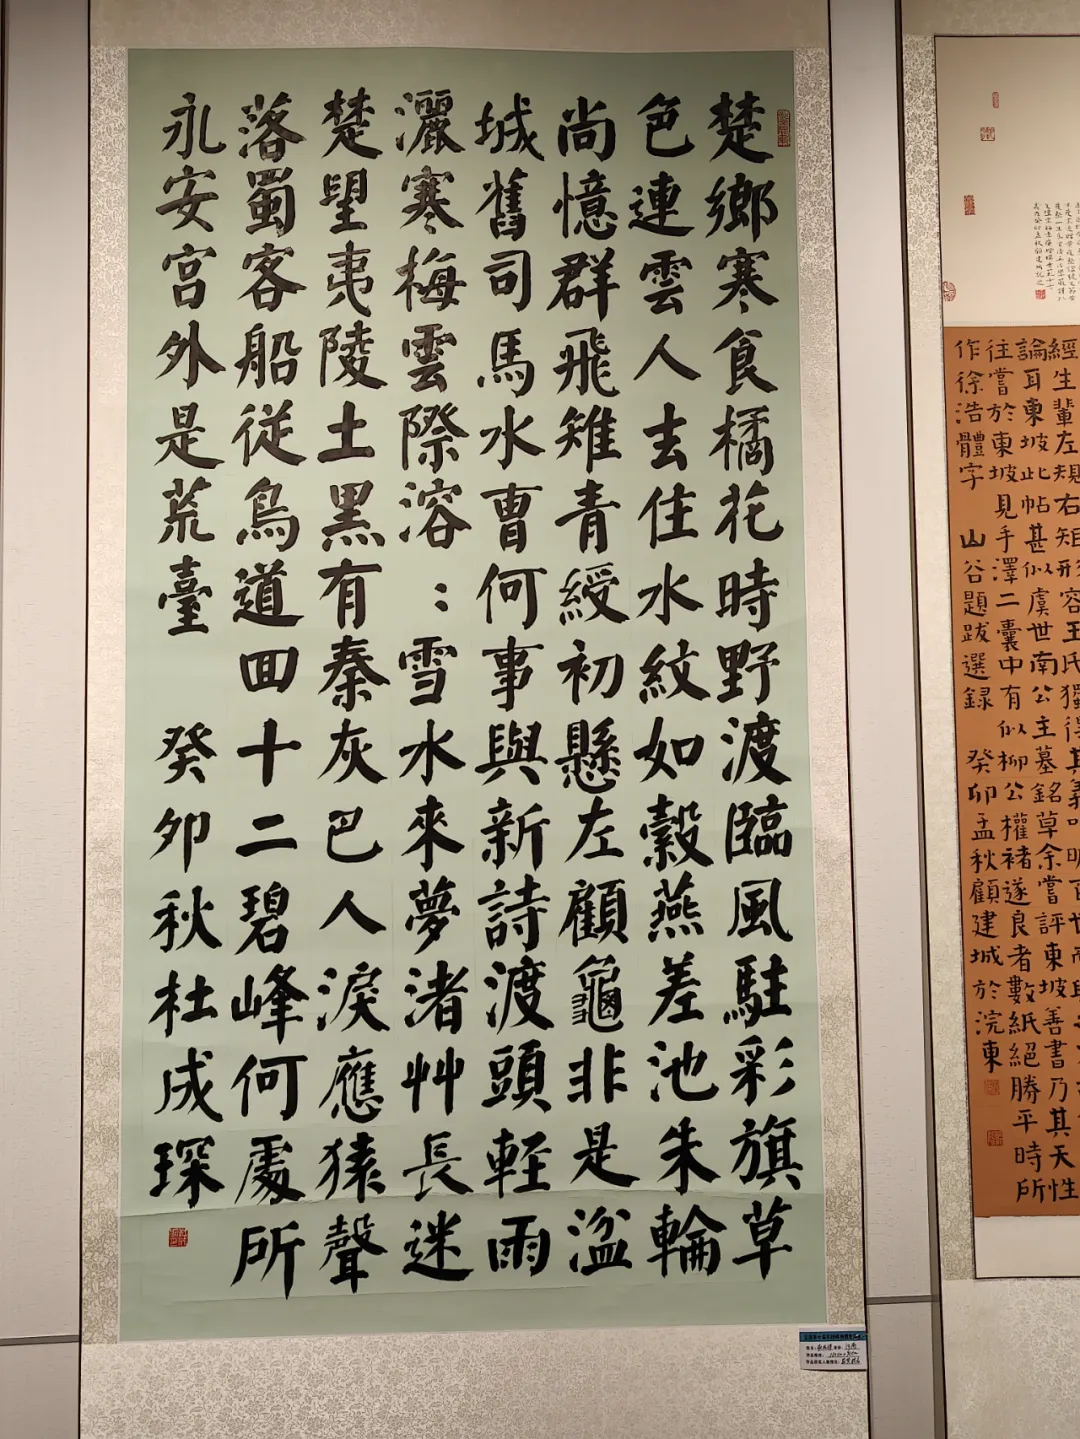 楚鄉寒食橘花時野渡臨風駐彩旗草
色連雲人去住水紋如縠燕差池朱輪
尚憶群飛雉青綬初懸左顧龜非是湓
城舊司馬水曹何事與新詩渡頭輕雨
灑寒梅雲際溶：雪水來夢渚艸長迷
楚望夷陵土黑有秦灰巴人淚應猿聲
落蜀客船從鳥道回十二碧峰何處所
永安宮外是荒臺 癸卯秋杜成琛
經生輩左規右矩形容王氏獨得其義
論耳東坡此帖甚似虞世南公主墓銘草余嘗評東坡善書乃其天性
往嘗於東坡見手澤二囊中有似柳公權褚遂良者數紙絕勝平時所
作徐浩體字 山谷題跋選録 癸卯孟秋顧建城於浣東